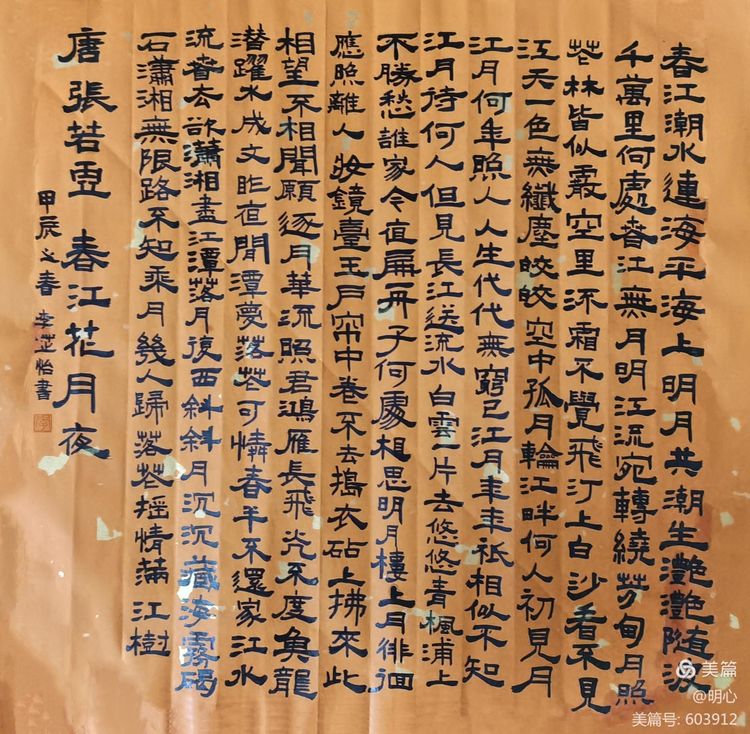 春江潮水連海平海上明月共潮生灔灔隨波
千萬里何處春江無月明江流宛轉繞芳甸月照
花林皆似霰空里流霜不覺飛汀上白沙看不見
江天一色無纖塵皎皎空中孤月輪江畔何人初見月
江月何年照人人生代代無窮已江月年年祇相似不知
江月待何人但見長江送流水白雲一片去悠悠青楓浦上
不勝愁誰家今夜扁舟子何處相思明月樓上月徘徊
應照離人妝鏡臺玉戶帘中卷不去搗衣砧上拂來此
相望不相聞願逐月華流照君鴻雁長飛光不度魚龍
潛躍水成文昨夜聞潭夢落花可憐春半不還家江水
流春去欲瀟湘盡江潭落月復西斜斜月沉沉藏海霧碣
石瀟湘無限路不知乘月幾人歸落花搖情滿江樹
唐張若虛 春江花月夜
甲辰之春 李芷怡書
美篇
@明心
美篇号: 603912